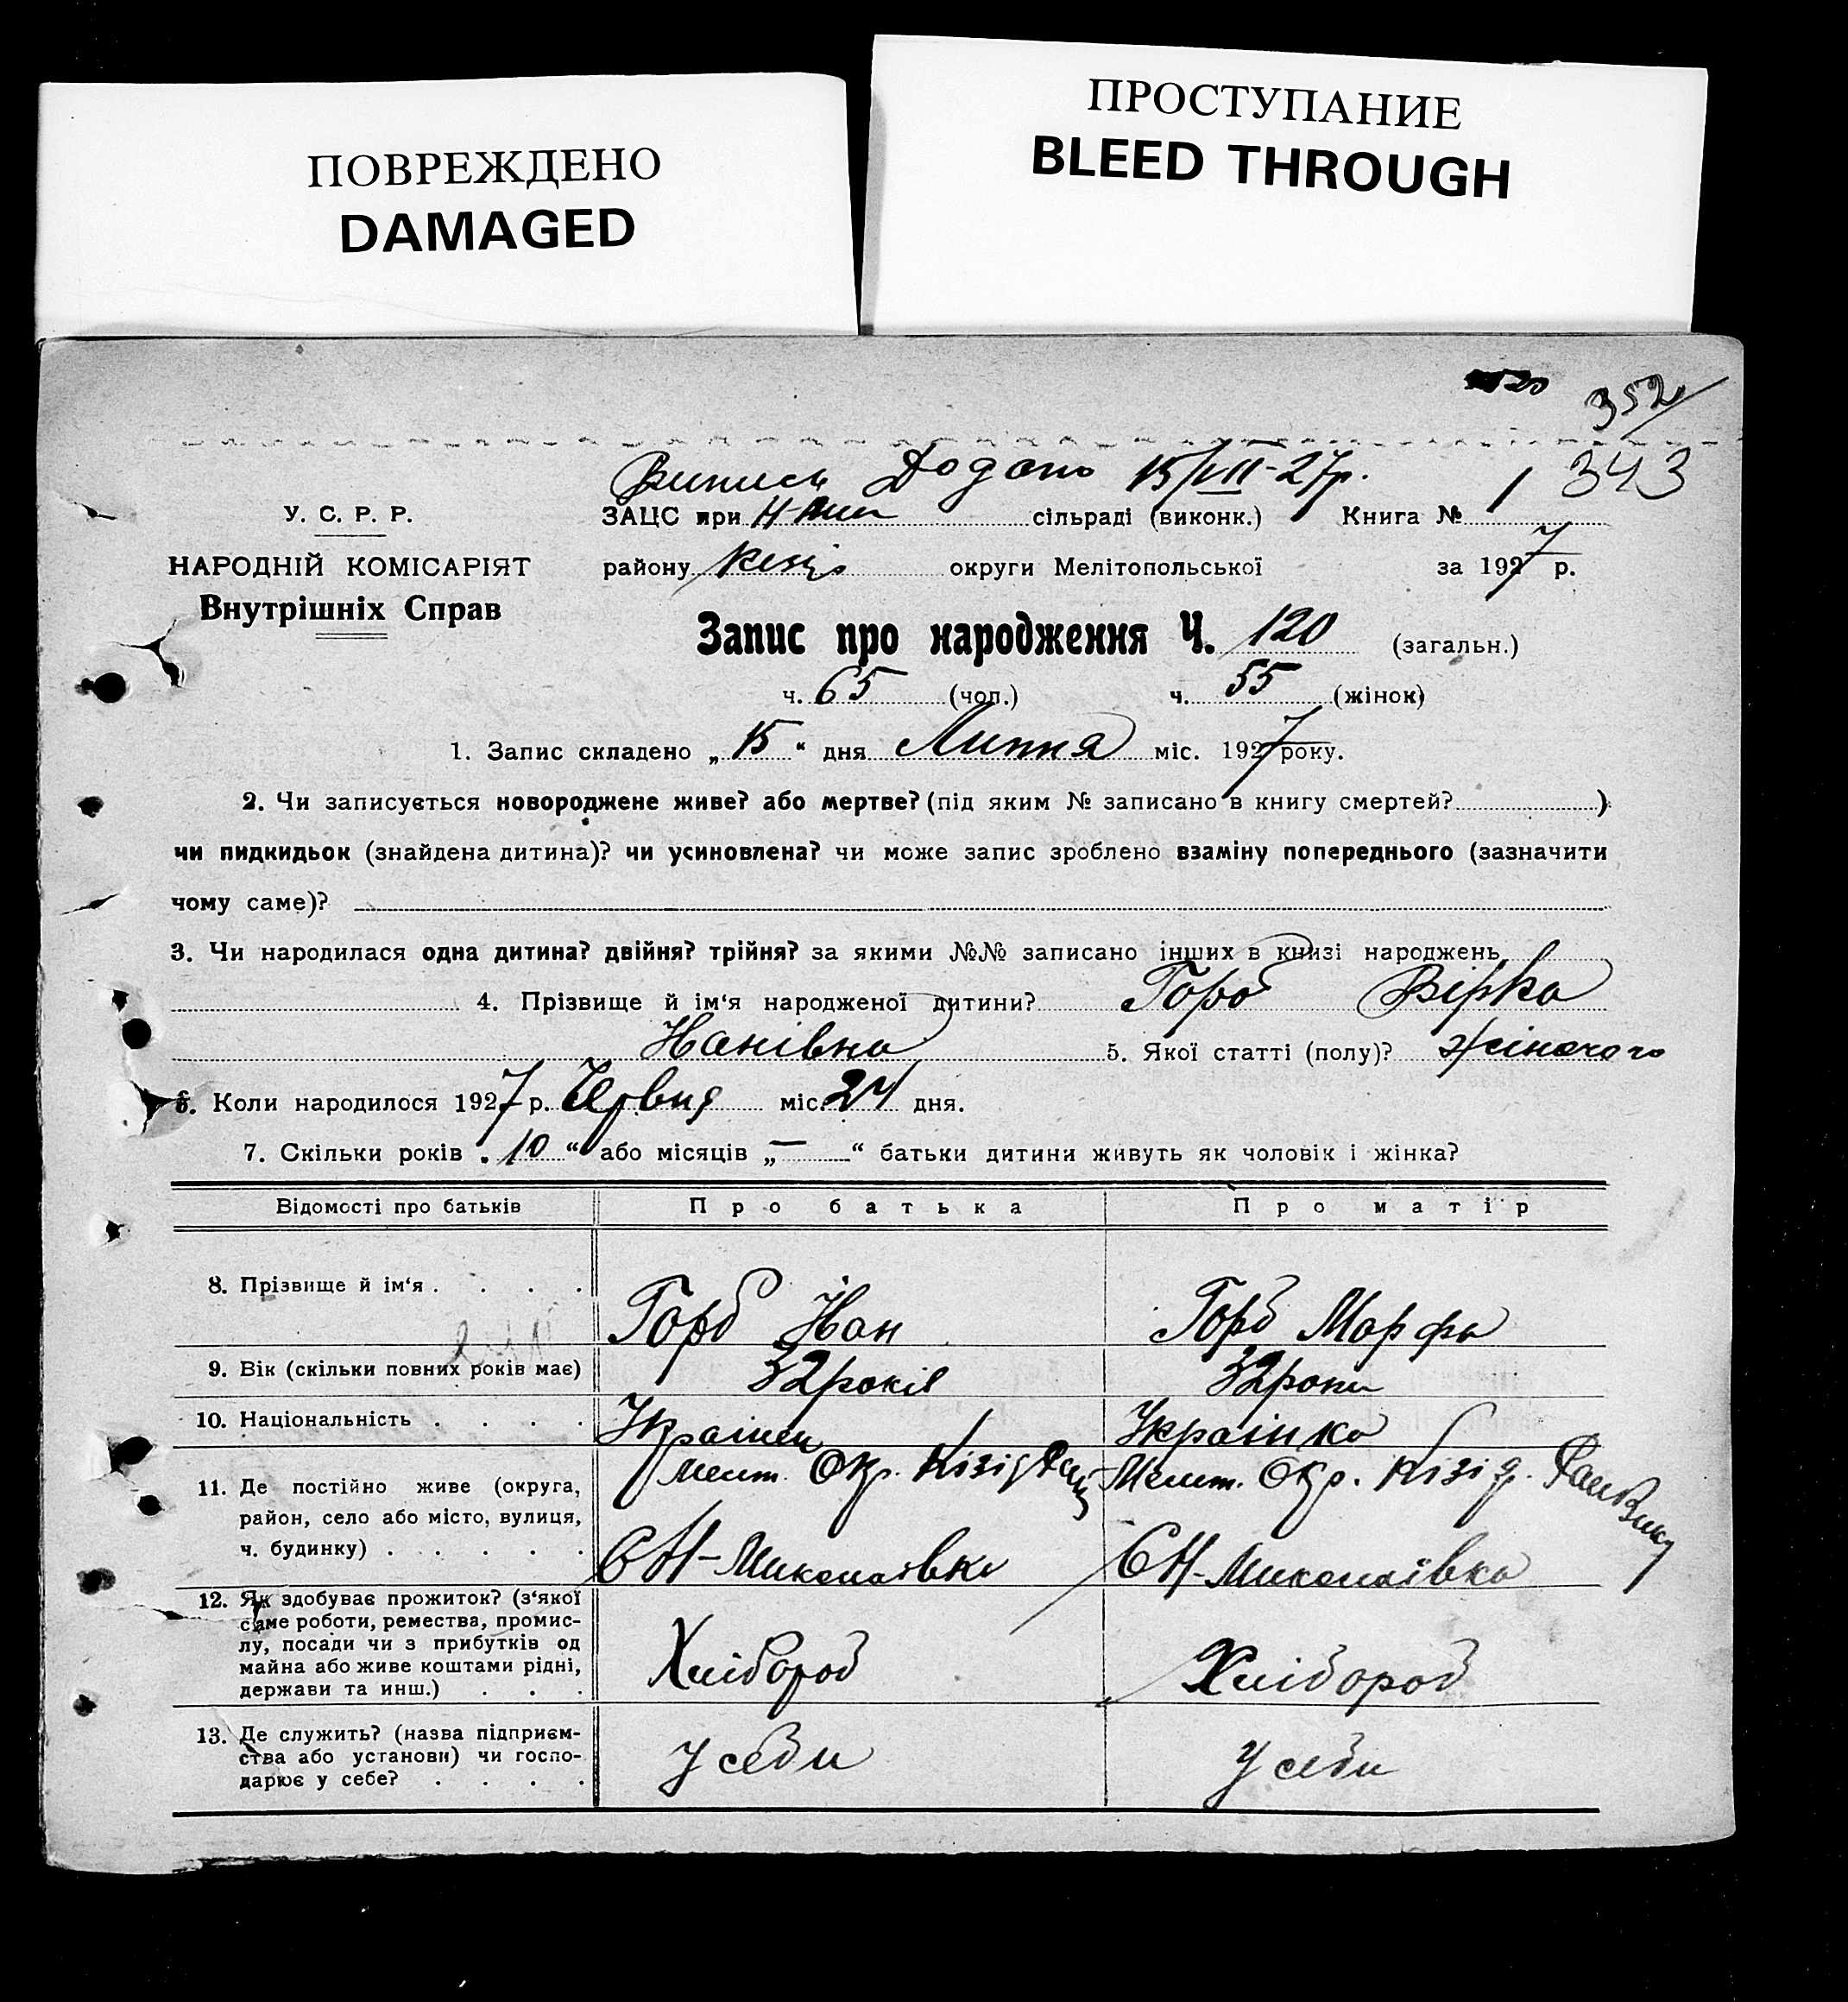 ПОВРЕЖДЕНО
DAMAGED
ПРОСТУПАНИЕ
BLEED THROUGH
352
Випись Додано 15/VII-27р. 343
У. С. Р. Р.
НАРОДНІЙ КОМІСАРІЯТ
Внутрішніх Справ
ЗАЦС при сільраді (виконк.) Книга № 1
району округи Мелітопольської за 1927 р.
Запис про народження Ч. 120 (загальн.)
ч. 65 (чол.) ч. 55 (жінок)
1. Запис складено „ 15 “ дня Липня міс. 1927 року.
2. Чи записується новороджене живе? або мертве? (під яким № записано в книгу смертей? )
чи пидкидьок (знайдена дитина)? чи усиновлена? чи може запис зроблено взаміну попереднього (зазначити
чому саме)?
3. Чи народилася одна дитина? двійня? трійня? за якими №№ записано інших в книзі народжень
4. Прізвище й ім‘я народженої дитини? Горб Вірка
Нанівна 5. Якої статті (полу)? жіночого
6. Коли народилося 1927 р. Червня міс. 24 дня.
7. Скільки років „ 10 “ або місяців „ — “ батьки дитини живуть як чоловік і жінка?
Відомості про батьків Про батька Про матір
8. Прізвище й ім‘я . . . . Горб Іван Горб Марфа
9. Вік (скільки повних років має) 32 років 32 роки
10. Національність . . . . Українец Українка
11. Де постійно живе (округа, Мелит. Окр. Кізід Мелит. Окр. Кізід.
район, село або місто, вулиця,
ч. будинку) . . . . . СН-Миколаівка СН-Миколаівка
12. Як здобуває прожиток? (з‘якої
саме роботи, ремества, промис-
лу, посади чи з прибутків од
майна або живе коштами рідні,
держави та инш.) . . . Хлібороб Хлібороб
13. Де служить? (назва підприєм-
ства або установи) чи госпо-
дарює у себе? . . . . У себи У себи